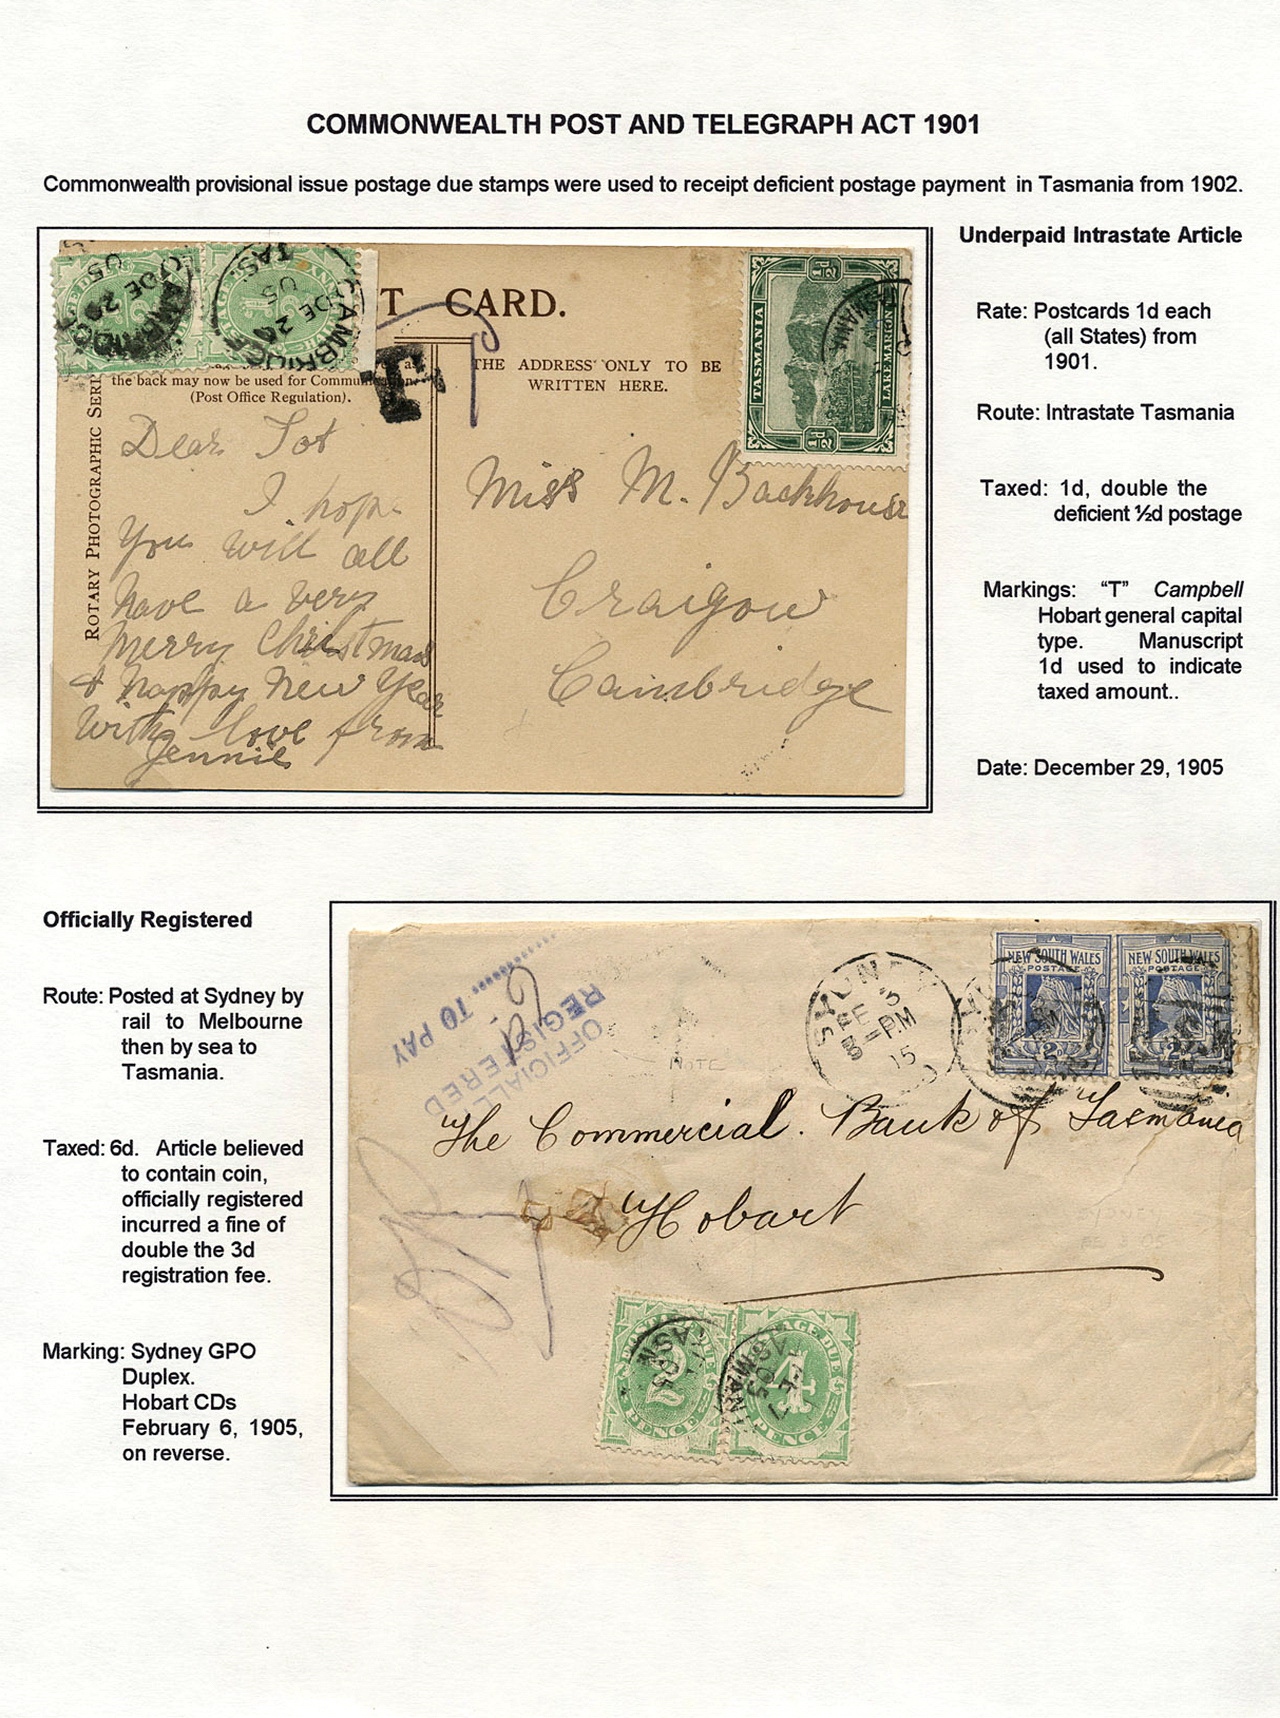 COMMONWEALTH POST AND TELEGRAPH ACT 1901
Commonwealth provisional issue postage due stamps were used to receipt deficient postage payment in Tasmania from 1902.
T CARD.
T
THE ADDRESS ONLY TO BE
WRITTEN HERE.
the back may now be used for
(Post Office Regulation).
ROTARY PHOTOGRAPHIC SERI
CAMBRIDGE
DE 29
05
TAS.
TASMANIA
LAKE MARION
½d
½d
Dear Tot
I hope
You will all
have a very
Merry Christmas
& Happy New Year
With love from
Jennie
Miss M. Backhouse
Craigow
Cambridge
Underpaid Intrastate Article
Rate: Postcards 1d each
(all States) from
1901.
Route: Intrastate Tasmania
Taxed: 1d, double the
deficient ½d postage
Markings: “T” Campbell
Hobart general capital
type. Manuscript
1d used to indicate
taxed amount..
Date: December 29, 1905
Officially Registered
Route: Posted at Sydney by
rail to Melbourne
then by sea to
Tasmania.
Taxed: 6d. Article believed
to contain coin,
officially registered
incurred a fine of
double the 3d
registration fee.
Marking: Sydney GPO
Duplex.
Hobart CDs
February 6, 1905,
on reverse.
OFFICIALL
REGISTERED
6d
TO PAY
NOTE
SYDNEY
FE 3
8 - PM
15
NEW SOUTH WALES
POSTAGE
2D
NEW SOUTH WALES
POSTAGE
2D
The Commercial. Bank of Tasmania
Hobart
POSTAGE DUE
2
PENCE
POSTAGE DUE
4
PENCE